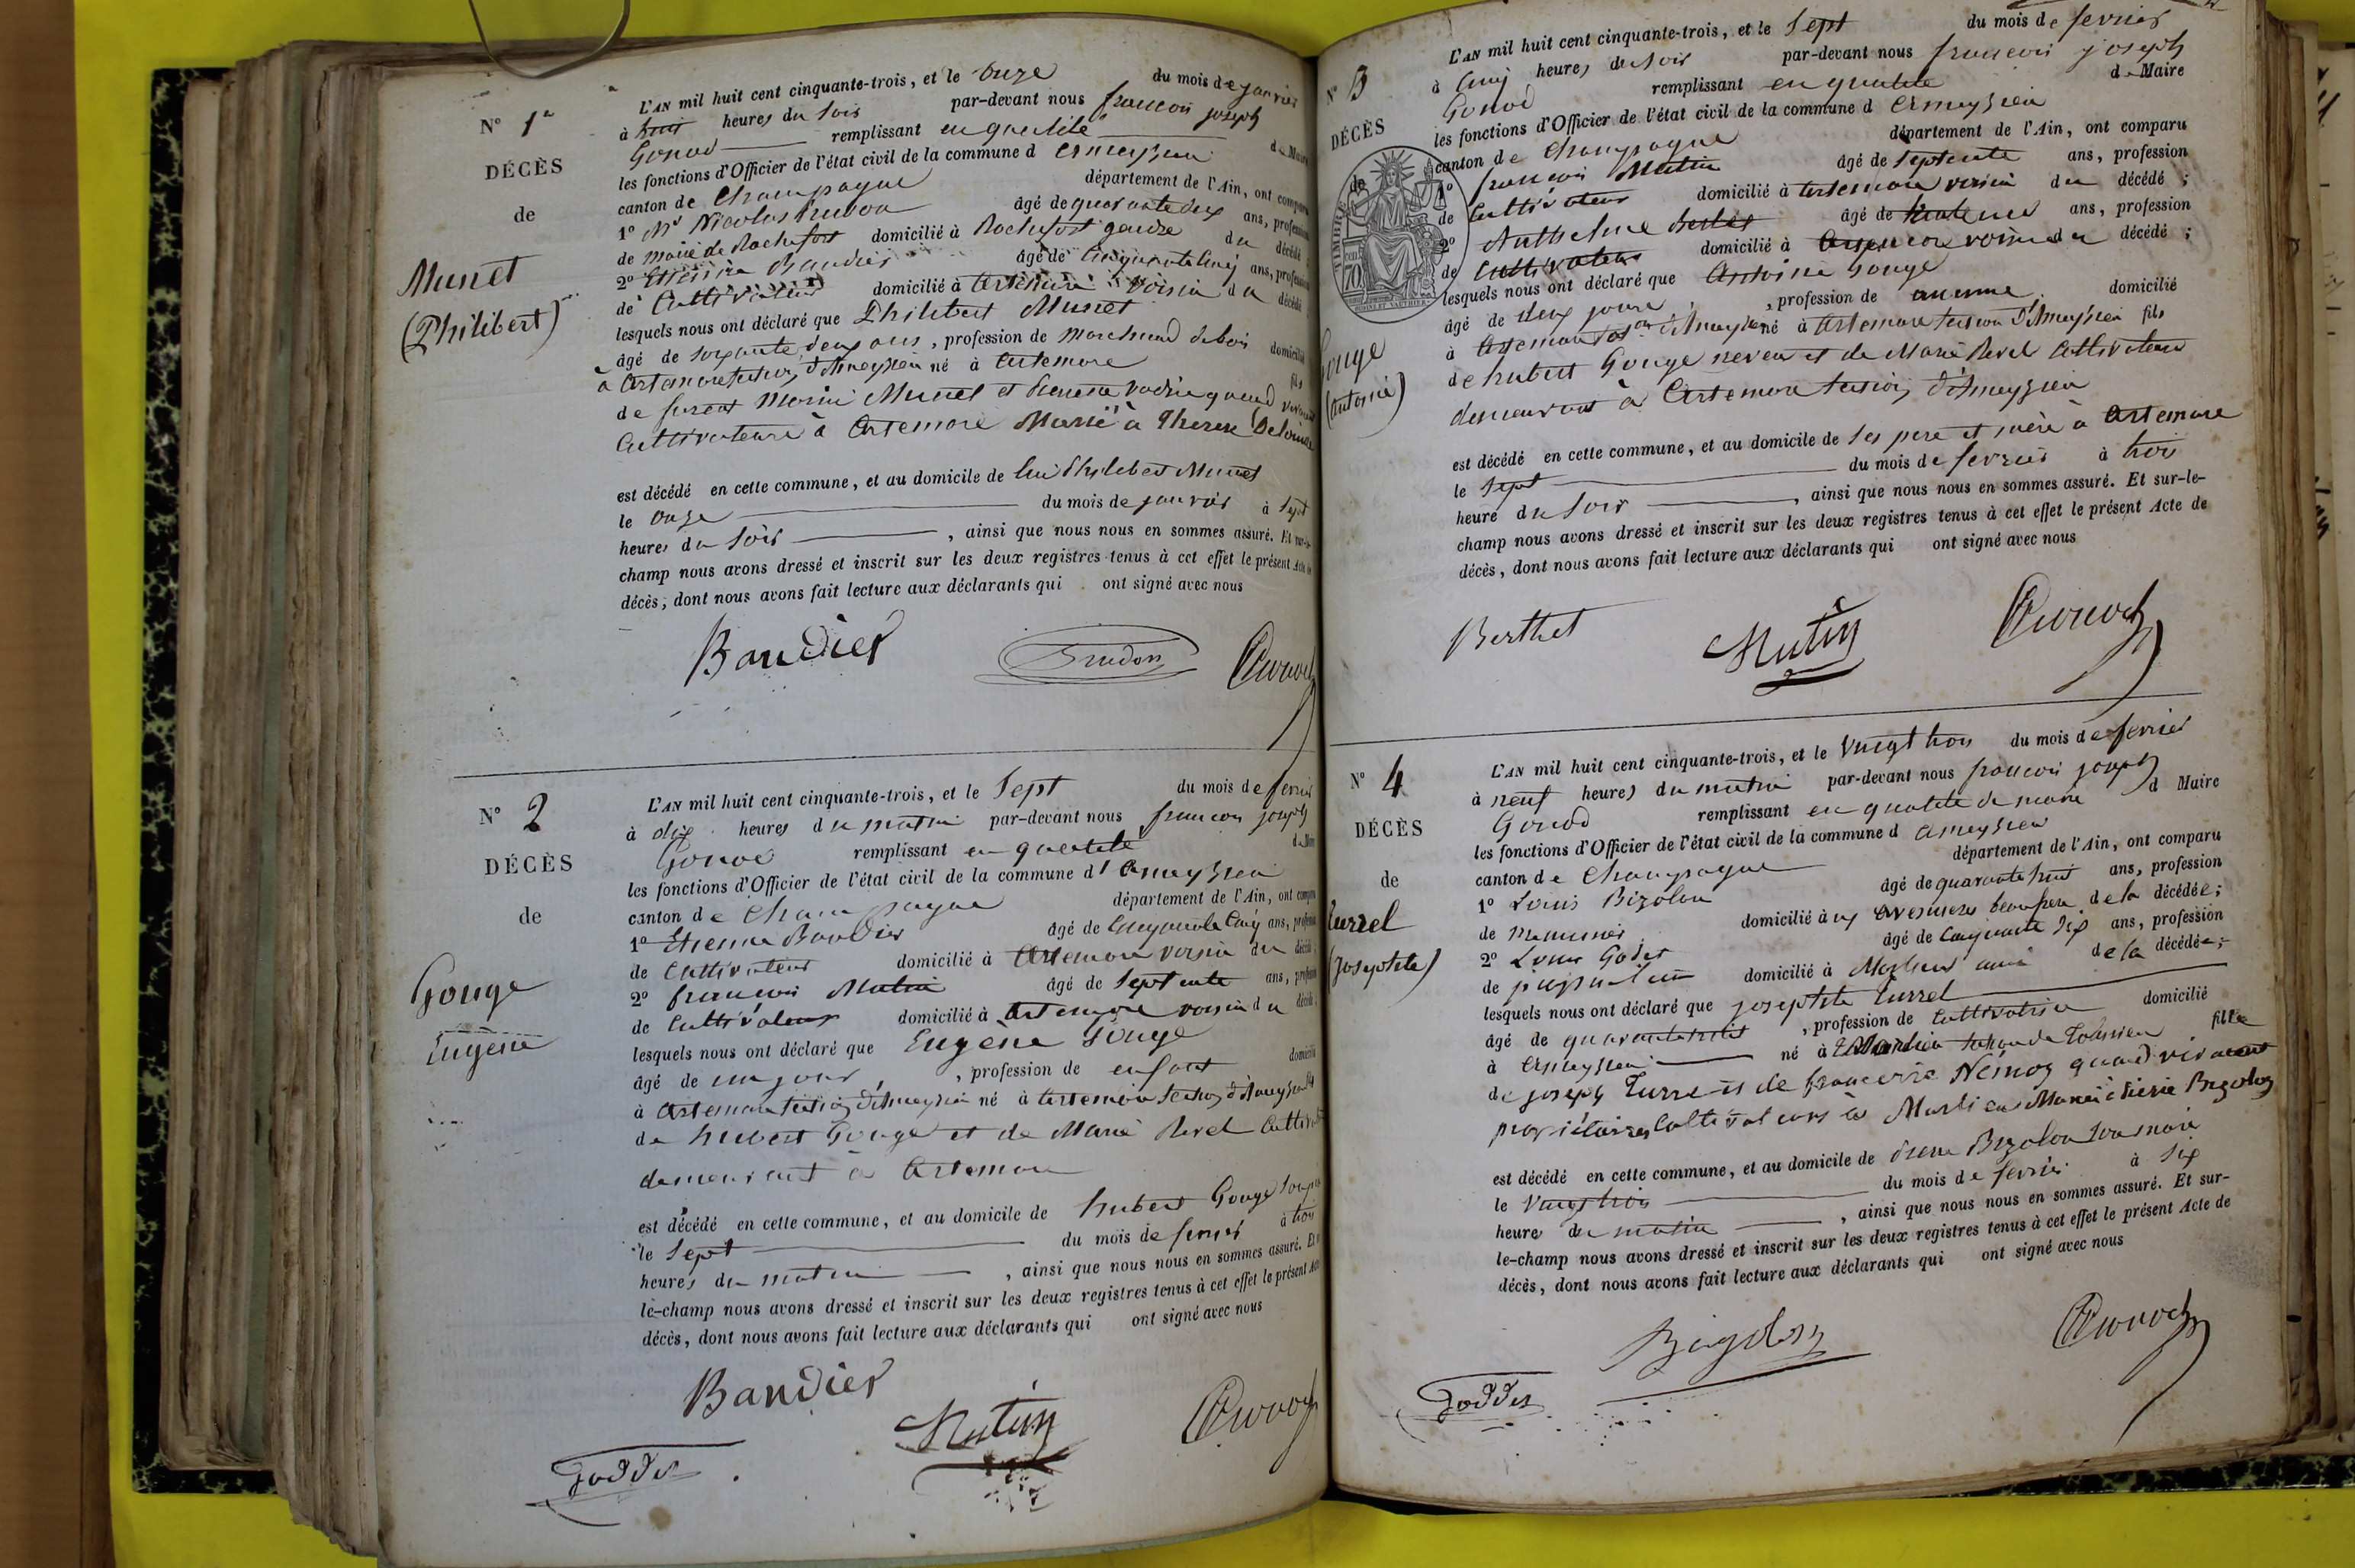 N° 1er
DÉCÈS
de
Munet
(Philibert)
L'AN mil huit cent cinquante-trois, et le onze du mois de janvier
à huit heures du soir par-devant nous françois joseph
Gonod remplissant en qualité de Maire
les fonctions d'Officier de l'état civil de la commune d ameyzieu
canton de Champagne département de l'Ain, ont comparu
1° Mr Nicolas Trudon âgé de quarante deux ans, profession
de maire de Rochefort domicilié à Rochefort gendre du décédé ;
2° Etienne Baudier âgé de cinquante cinq ans, profession
de Cultivateur domicilié à artemare voisin du décédé
lesquels nous ont déclaré que Philibert Munet
âgé de soixante deux ans, profession de marchand de bois domicilié
à artemare section d'Ameyzieu né à artemare fils
de furent Munet et quand vivaient
Cultivateurs à artemare Marié à Therese
est décédé en cette commune, et au domicile de lui Philibert Munet
le onze du mois de janvier à sept
heures du soir, ainsi que nous nous en sommes assuré. Et sur-le-
champ nous avons dressé et inscrit sur les deux registres tenus à cet effet le présent Acte de
décès, dont nous avons fait lecture aux déclarants qui ont signé avec nous
Baudier Trudon Gonod
N° 2
DÉCÈS
de
Gouge
Eugène
L'AN mil huit cent cinquante-trois, et le sept du mois de fevrier
à dix heures du matin par-devant nous francois joseph
Gonod remplissant en qualité de Maire
les fonctions d'Officier de l'état civil de la commune d'ameyzieu
canton de Champagne département de l'Ain, ont comparu
1° Etienne Baudier âgé de cinquante cinq ans, profession
de cultivateur domicilié à artemare voisin du décédé ;
2° francois Mutin âgé de septente ans, profession
de Cultivateur domicilié à artemare voisin du décédé ;
lesquels nous ont déclaré que Eugène Gouge
âgé de un jour, profession de enfant domicilié
à artemare section d'Ameyzieu né à artemare section d'Ameyzieu fils
de hubert Gouge et de Marie Revel
demeurant à artemare
est décédé en cette commune, et au domicile de hubert Gouge
le sept du mois de fevrier à trois
heures du matin, ainsi que nous nous en sommes assuré. Et sur-
le-champ nous avons dressé et inscrit sur les deux registres tenus à cet effet le présent Acte
décès, dont nous avons fait lecture aux déclarants qui ont signé avec nous
Baudier Mutin Gonod
Goddet
N° 3
DÉCÈS
de
Gouge
(antoine)
L'AN mil huit cent cinquante-trois, et le sept du mois de fevrier
à cinq heures du soir par-devant nous francois joseph
Gonod remplissant en qualité de Maire
les fonctions d'Officier de l'état civil de la commune d ameyzieu
canton de Champagne département de l'Ain, ont comparu
1° francois Mutin âgé de septente ans, profession
de Cultivateur domicilié à artemare voisin du décédé ;
2° Anthelme Berthet âgé de ans, profession
de cultivateur domicilié à artemare voisin du décédé ;
lesquels nous ont déclaré que Antoine Gouge
âgé de deux jours, profession de aucune domicilié
à artemare son d'Ameyzieu né à artemare section d'Ameyzieu fils
de hubert Gouge et de Marie Revel cultivateurs
demeurant à artemare section d'Ameyzieu
est décédé en cette commune, et au domicile de ses pere et mère à artemare
le sept du mois de fevrier à trois
heure du soir, ainsi que nous nous en sommes assuré. Et sur-le-
champ nous avons dressé et inscrit sur les deux registres tenus à cet effet le présent Acte de
décès, dont nous avons fait lecture aux déclarants qui ont signé avec nous
Berthet Mutin Gonod
N° 4
DÉCÈS
de
Turrel
(josephte)
L'AN mil huit cent cinquante-trois, et le vingt trois du mois de fevrier
à neuf heures du matin par-devant nous francois joseph
Gonod remplissant en qualité de maire d Maire
les fonctions d'Officier de l'état civil de la commune d ameyzieu
canton de Champagne département de l'Ain, ont comparu
1° Louis Bizolon âgé de quarante huit ans, profession
de menuisier domicilié à beaufrere de la décédée ;
2° Louis Godet âgé de cinquante six ans, profession
de domicilié à ami de la décédée ;
lesquels nous ont déclaré que josephte Turrel
âgé de quarante huit, profession de cultivatrice domicilié
à ameyzieu né à fille
de joseph Turrel et de francoise Némoz quand vivaient
propriétaires Cultivateurs à Marlieu Mariée à Bizolon
est décédé en cette commune, et au domicile de Bizolon son mari
le vingt trois du mois de fevrier à six
heure du matin, ainsi que nous nous en sommes assuré. Et sur-
le-champ nous avons dressé et inscrit sur les deux registres tenus à cet effet le présent Acte de
décès, dont nous avons fait lecture aux déclarants qui ont signé avec nous
Bizolon Gonod
Goddet